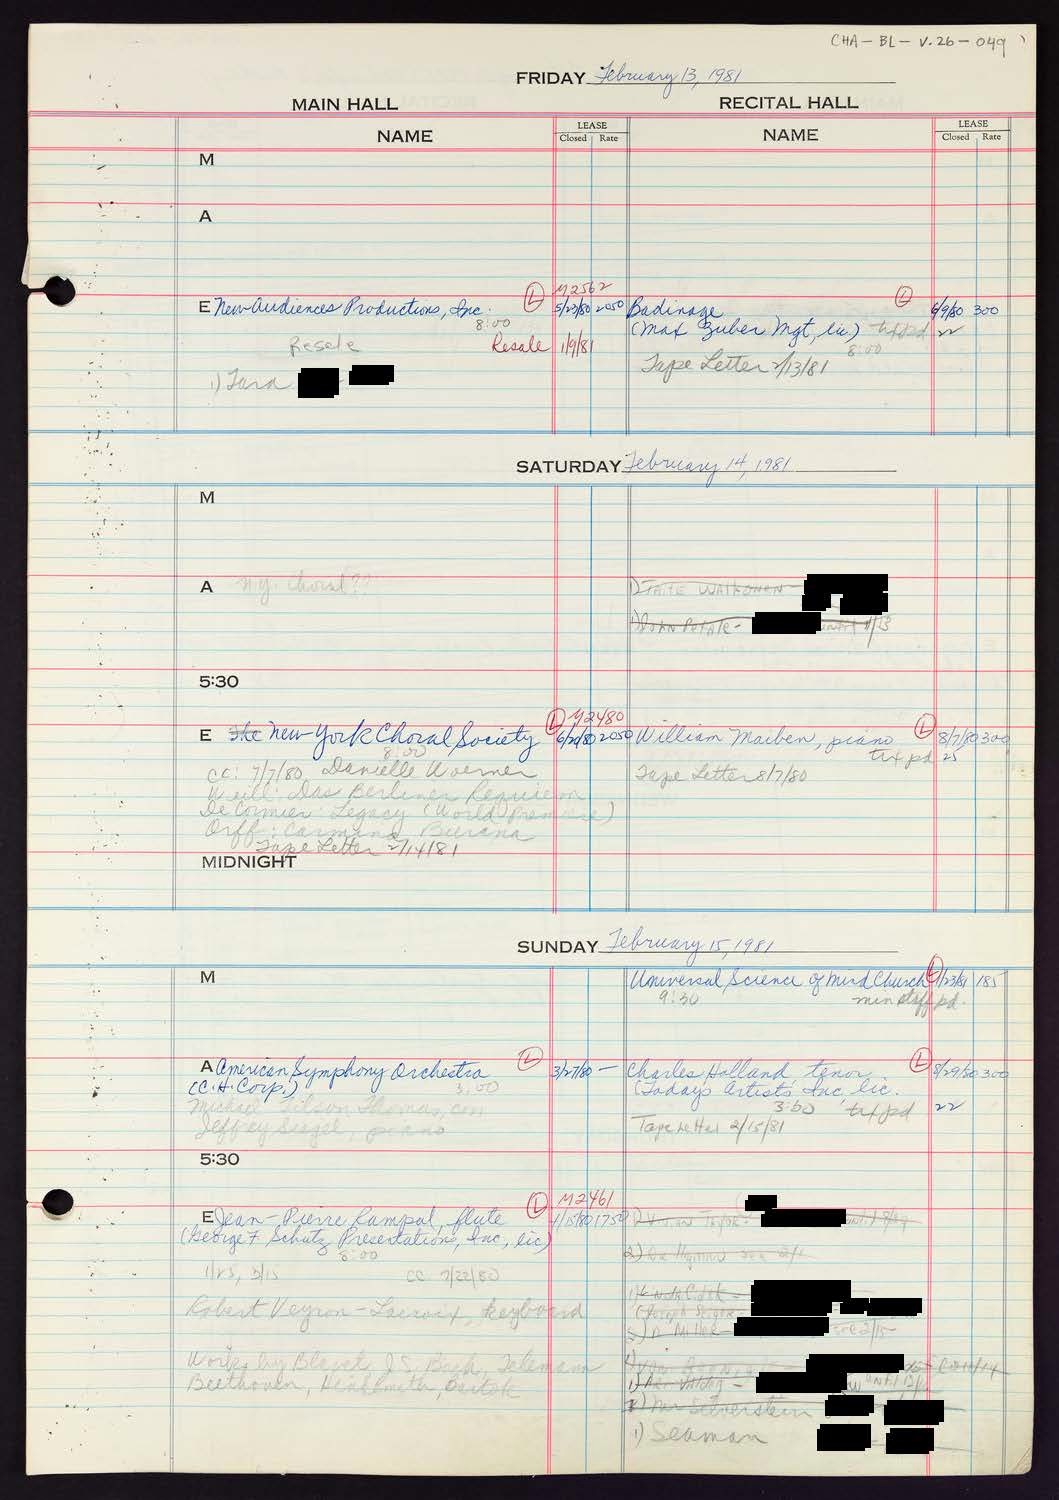 CHA-BL-V.26-049
FRIDAY February 13, 1981
MAIN HALL RECITAL HALL
NAME LEASE Closed Rate NAME LEASE Closed Rate
M
A
M2562
E New Audiences Productions, Inc. L 5/23/80 2050
8:00
Resale Resale 1/9/81
1) Tara
Badinage L 6/9/80 300
(Max Zuber Mgt, lic.) tx pd 22
8:00
Tape Letter 2/13/81
SATURDAY February 14, 1981
M
A N.Y. Choral??
1) TAITE WALKONEN -
1) JOHN - until 1/13
5:30
M2480
E The New York Choral Society L 6/20/80 2050
8:00
cc: 7/7/80 Danielle Woerner
Weill: Das Berliner Requiem
De Cormier: Legacy (World Premiere)
Orff: Carmina Burana
Tape Letter 2/14/81
William Maiben, piano L 8/7/80 300
tx pd 25
Tape Letter 8/7/80
MIDNIGHT
SUNDAY February 15, 1981
M
Universal Science of Mind Church L 1/23/81 185
9:30 min staff pd.
A American Symphony Orchestra L 3/27/80 -
(C.H. Corp.) 3:00
Michael Tilson Thomas, con
Jeffrey Siegel, piano
Charles Holland tenor L 8/29/80 300
(Today's Artists' Inc, lic.
3:00 tx pd 22
Tape Letter 2/15/81
5:30
M2461
E Jean-Pierre Rampal, flute L 1/15/80 1750
(George F. Schutz Presentations, Inc, lic)
8:00
1/25, 3/15 cc 7/22/80
Robert Veyron-Lacroix, keyboard
Works by Blavet, J.S. Bach, Telemann
Beethoven, Hindemith, Bartok
1) Vivian Taylor -
2)
1)
Joseph
Miller - 2/15
4)
1)
Silverstein
1) Seaman